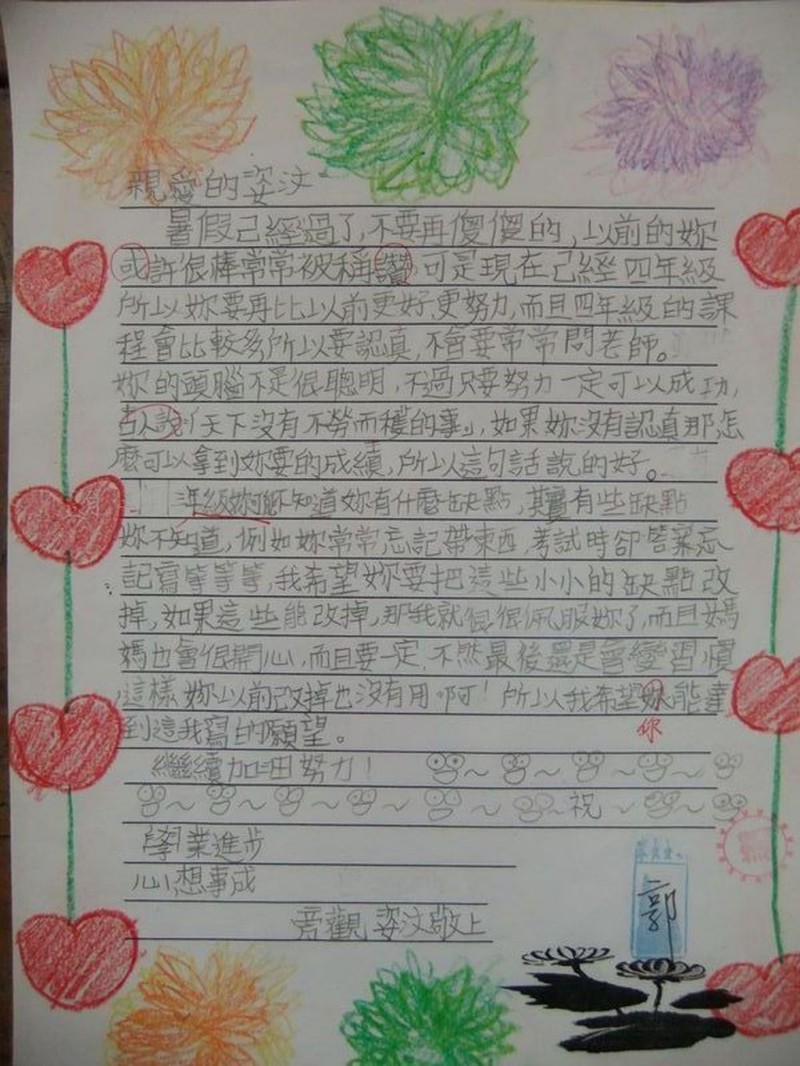 親愛的姿汶
暑假已經過了,不要再傻傻的,以前的妳
或許很棒常常被稱讚,可是現在已經四年級
所以妳要再比以前更好,更努力,而且四年級的課
程會比較多所以要認真,不會要常常問老師。
妳的頭腦不是很聰明,不過只要努力一定可以成功,
古人說:「天下沒有不勞而穫的事」,如果妳沒有認真那怎
麼可以拿到妳要的成績,所以這句話說的好。
年級妳可能不知道妳有什麼缺點,其實有些缺點
妳不知道,例如妳常常忘記帶東西,考試時卻答案忘
記寫等等等,我希望妳要把這些小小的缺點改
掉,如果這些能改掉,那我就很很佩服妳了,而且媽
媽也會很開心,而且要一定,不然最後還是會變習慣
這樣妳以前改掉也沒有用啊!所以我希望妳能達
你
到這我寫的願望。
繼續加油努力!
祝
學業進步
心想事成
旁觀姿汶敬上
郭